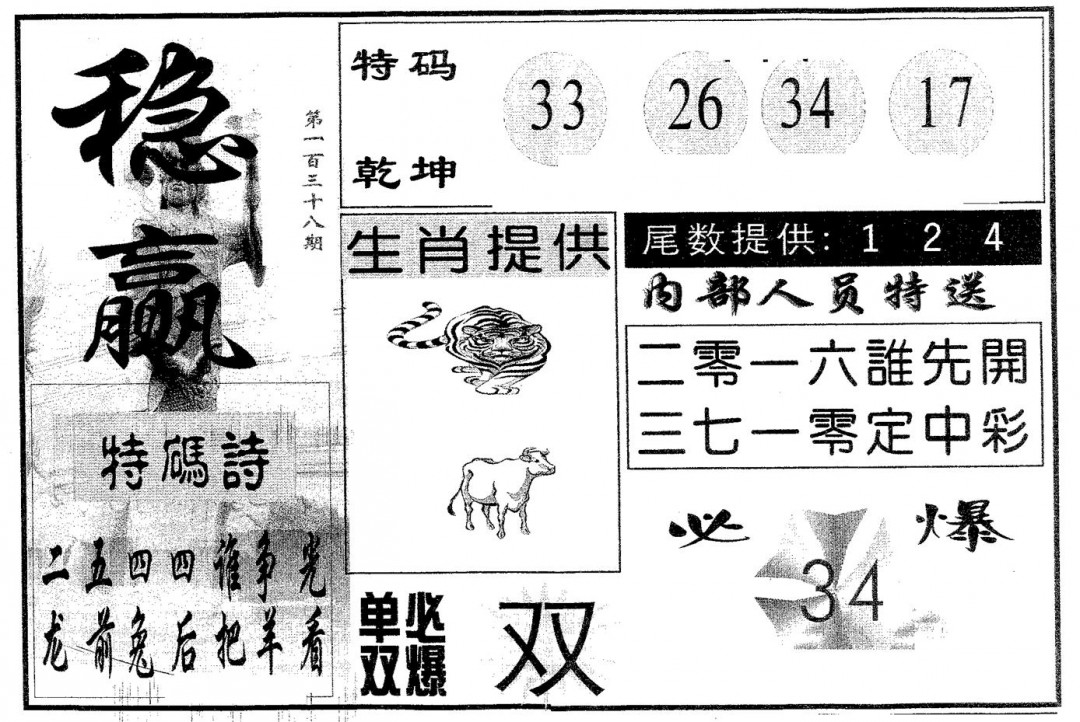 稳
赢
第一百三十八期
特码
乾坤
33 26 34 17
生肖提供
尾数提供: 1 2 4
内部人员特送
二零一六誰先開
三七一零定中彩
特碼詩
二五四四谁争宪
龙前兔后把羊看
必 爆
34
单双
必爆
双